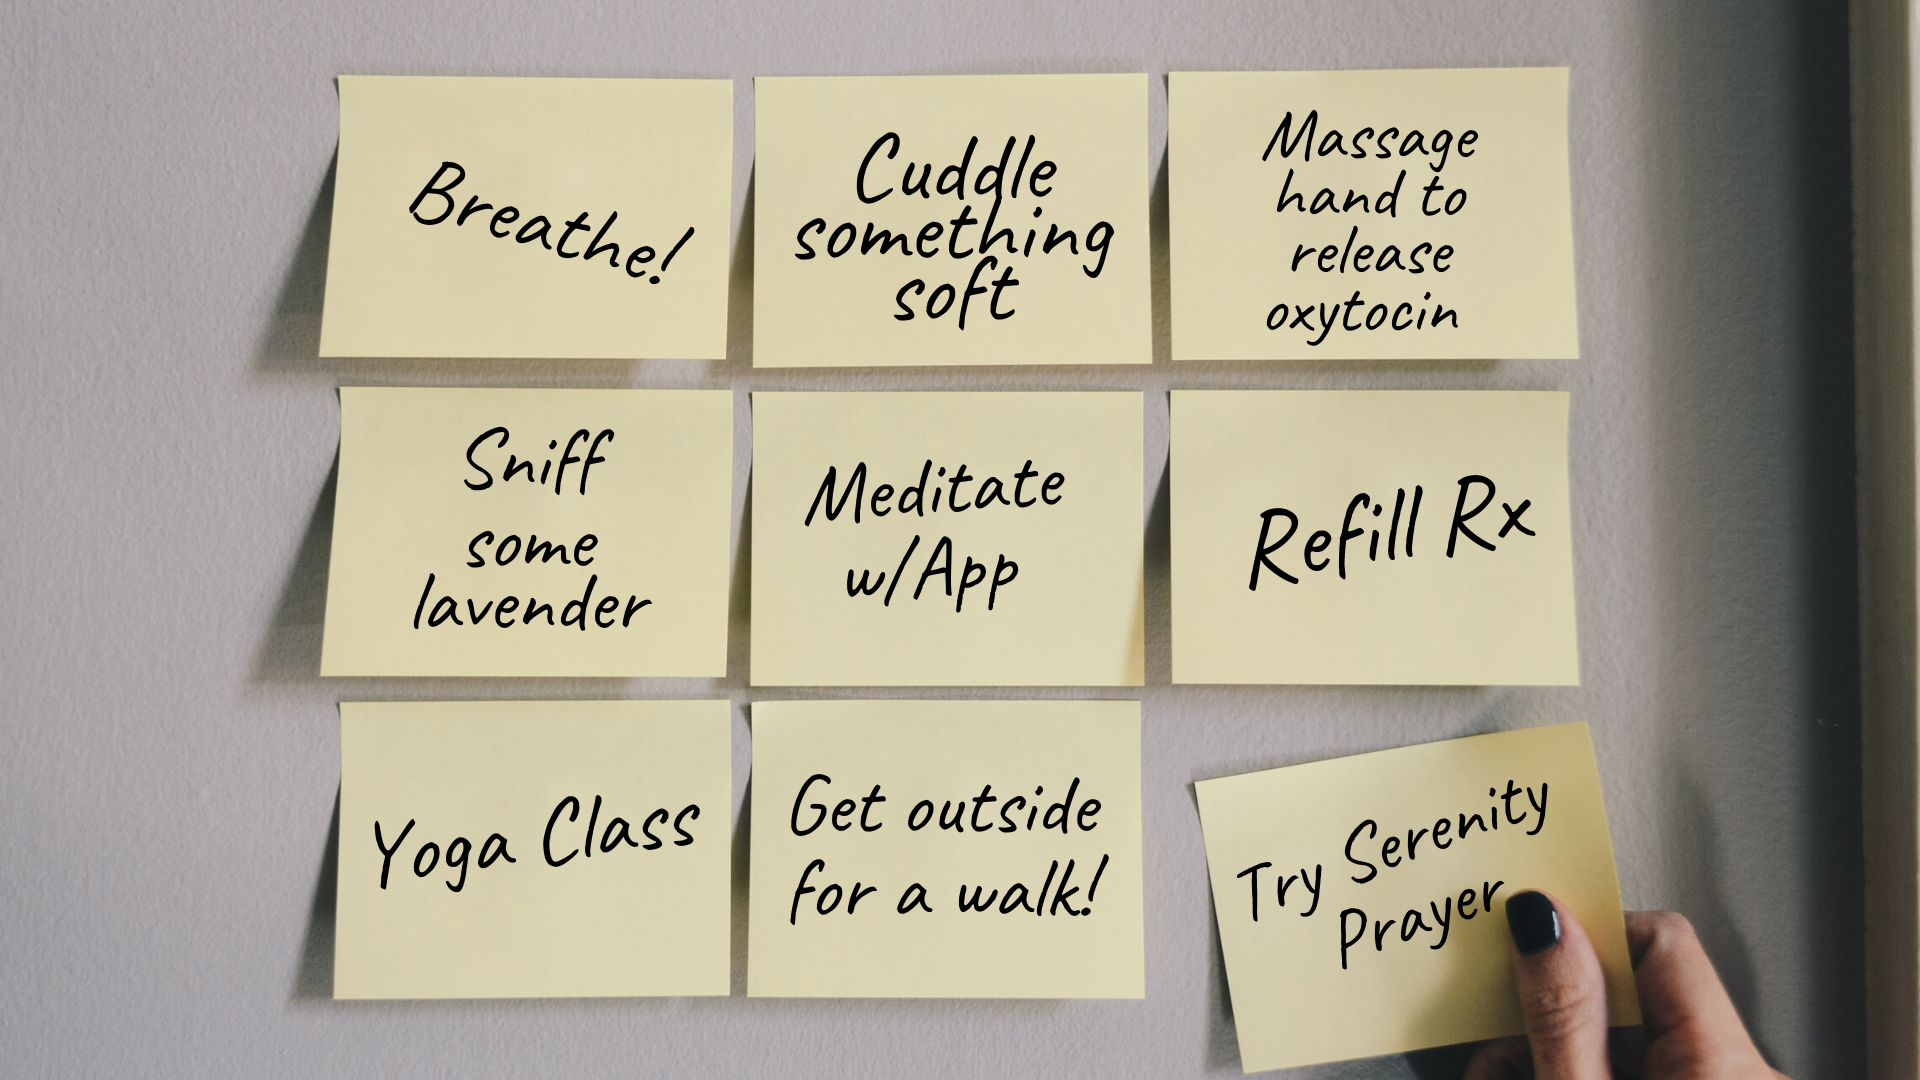 Breathe!
Cuddle
something
soft
Massage
hand to
release
oxytocin
Sniff
some
lavender
Meditate
w/App
Refill Rx
Yoga Class
Get outside
for a walk!
Try Serenity
Prayer